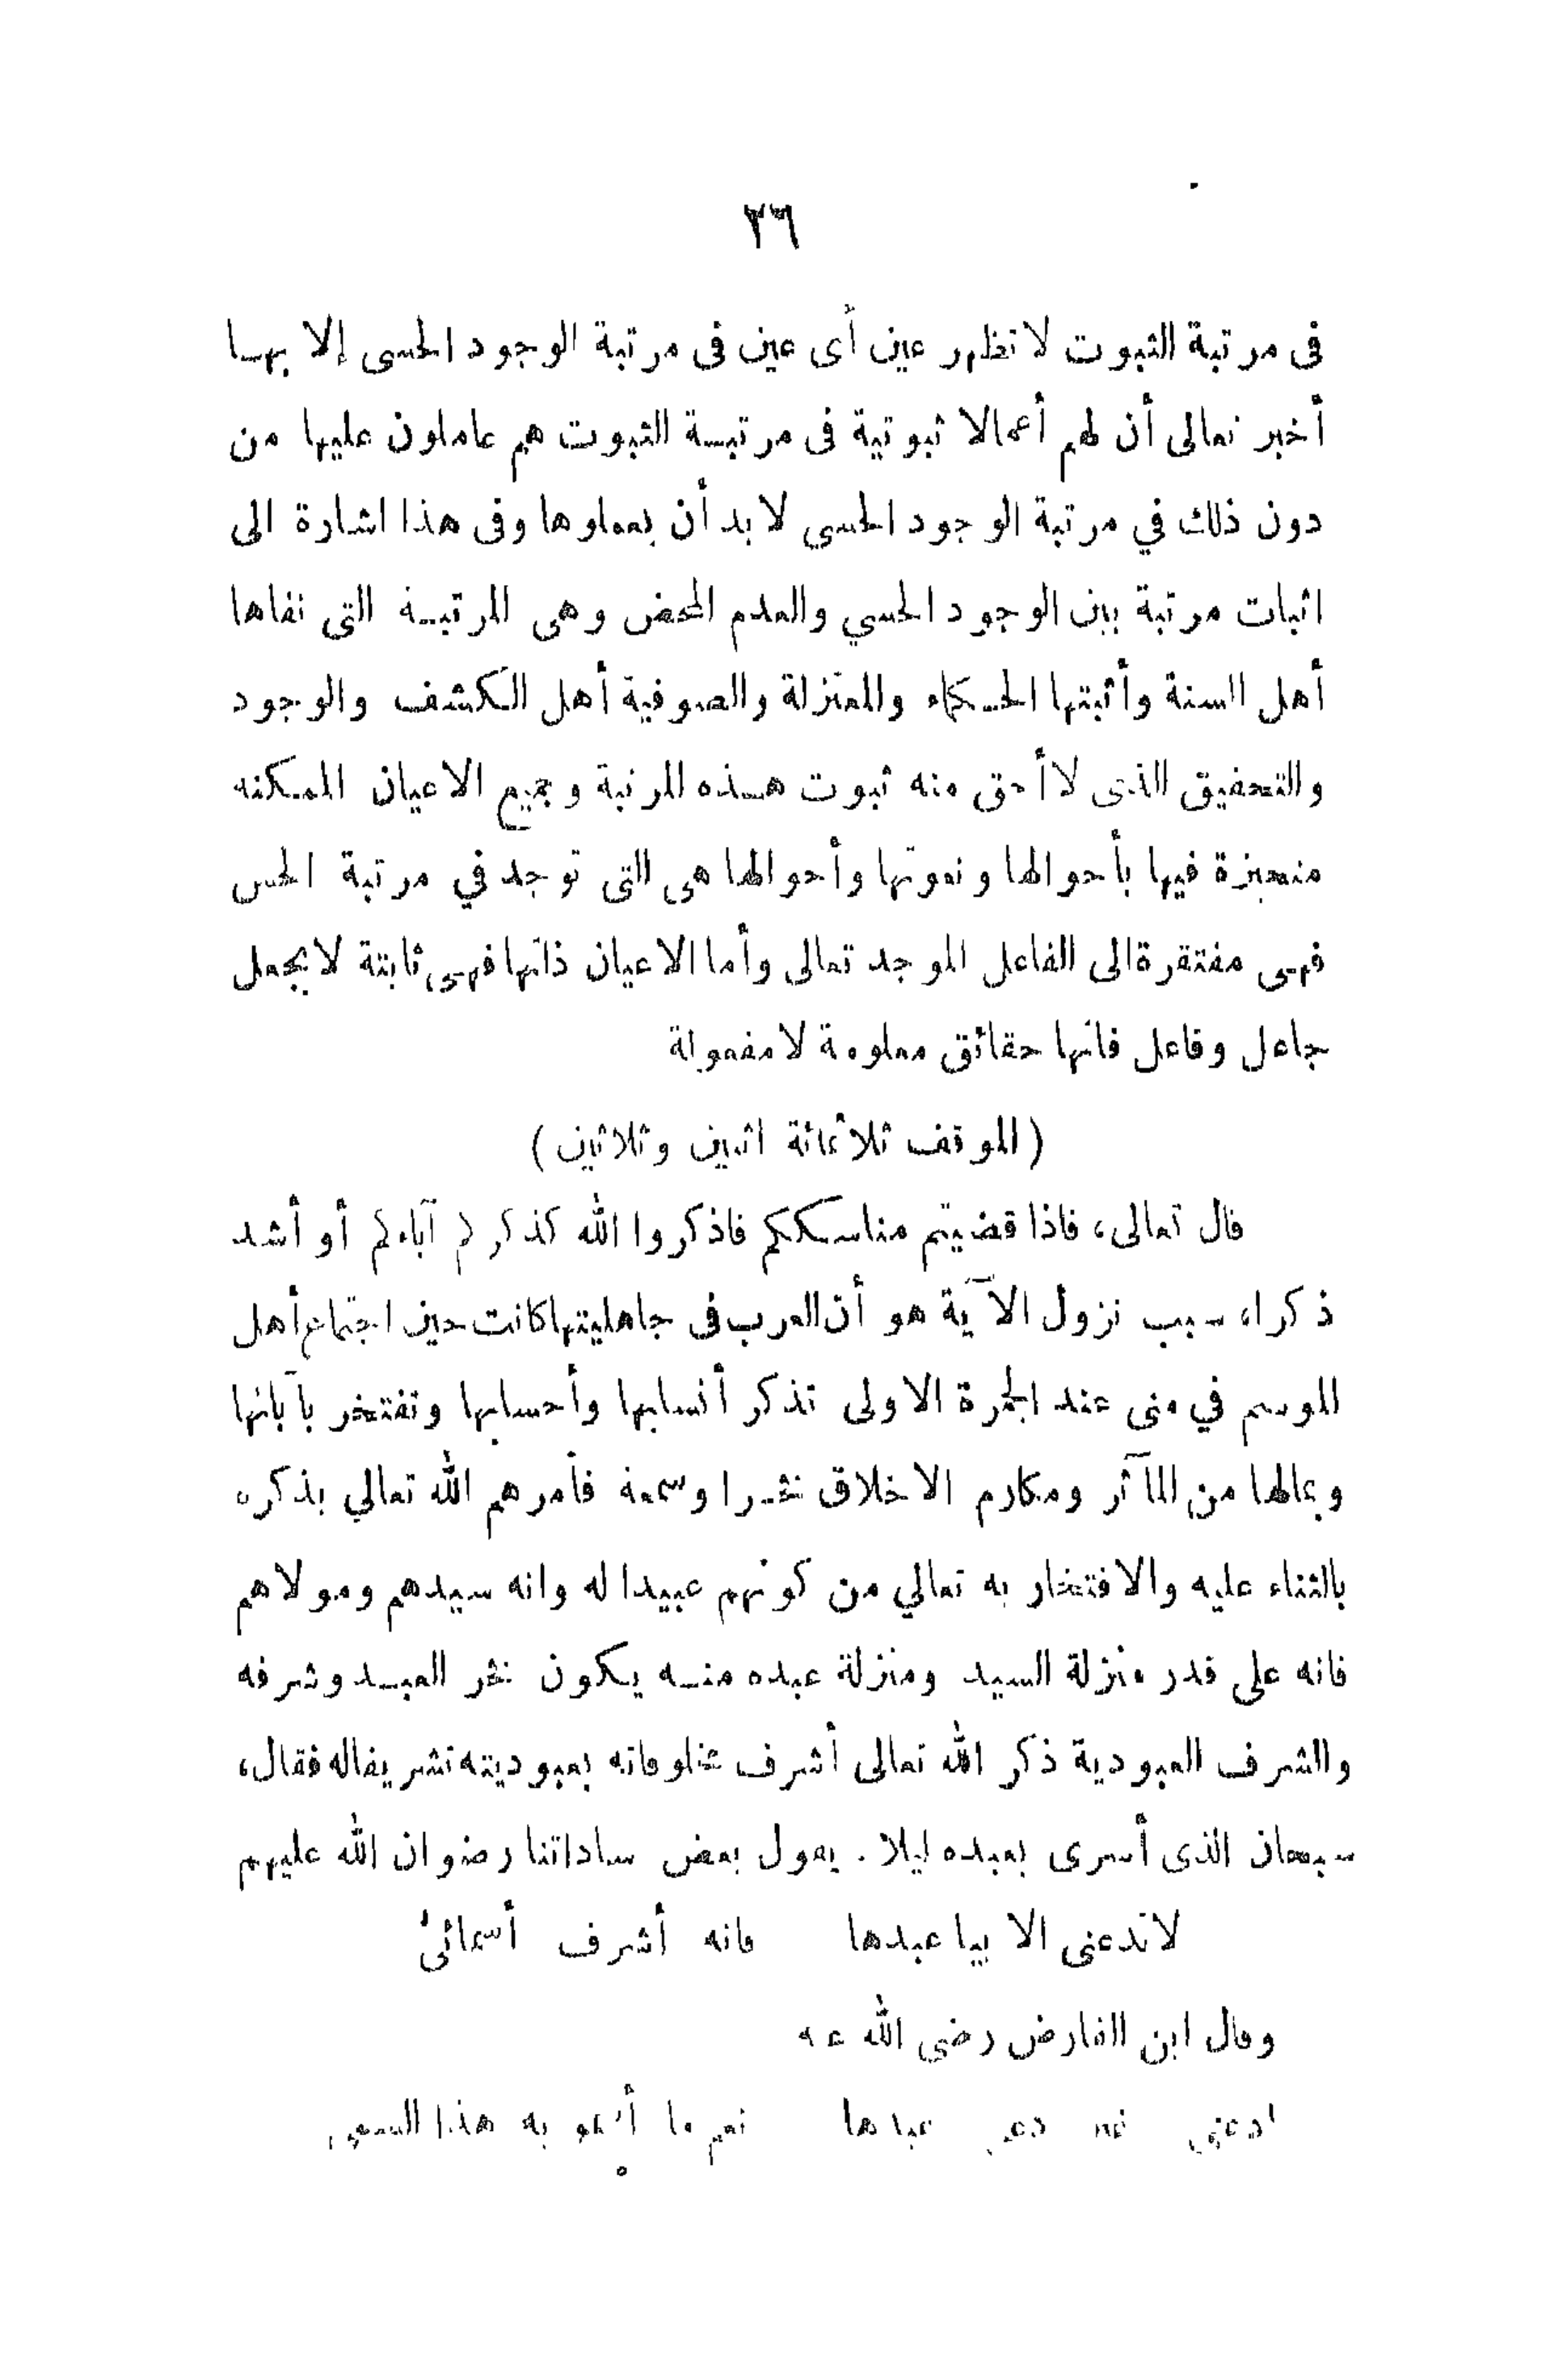 ٢٦
فى مرتبة الثبوت لا تظهر عين أى عين فى مرتبة الوجود الحسى إلا بها
أخبر تعالى أن لهم أعمالا ثبوتية فى مرتبة الثبوت هم عاملون عليها من
دون ذلك في مرتبة الوجود الحسي لا بد أن يعملوها وفى هذا اشارة الى
اثبات مرتبة بين الوجود الحسي والعدم المحض وهى المرتبة التى نفاها
أهل السنة وأثبتها الحكماء والمعتزلة والصوفية أهل الكشف والوجود
والتحقيق الذى لا أحق منه ثبوت هذه المرتبة وجميع الاعيان الممكنه
متحيزة فيها بأحوالها ونعوتها وأحوالها هى التى توجد في مرتبة الحس
فهى مفتقرة الى الفاعل الموجد تعالى وأما الاعيان ذاتها فهى ثابتة لا بجعل
جاعل وفاعل فانها حقائق معلومة لا مفعولة
(الموقف ثلاثمائة اثنين وثلاثين)
قال تعالى، فاذا قضيتم مناسككم فاذكروا الله كذكركم آباءكم أو أشد
ذكرا، سبب نزول الآية هو أن العرب فى جاهليتها كانت حين اجتماع أهل
الموسم في منى عند الجمرة الاولى تذكر أنسابها وأحسابها وتفتخر بآبائها
وبمالها من المآثر ومكارم الاخلاق فخرا وسمعة فأمرهم الله تعالي بذكره
بالثناء عليه والافتخار به تعالي من كونهم عبيدا له وانه سيدهم ومولاهم
فانه على قدر منزلة السيد ومنزلة عبده منه يكون فخر العبد وشرفه
والشرف العبودية ذكر الله تعالى أشرف مخلوقاته بعبوديته تشريفا له فقال،
سبحان الذى أسرى بعبده ليلا. يقول بعض ساداتنا رضوان الله عليهم
لا تدعنى الا بيا عبدها فانه أشرف أسمائىُ
وقال ابن الفارض رضى الله عنه
ادعنى غير دعى عبدها نعم ما أدعو به هذا السمى